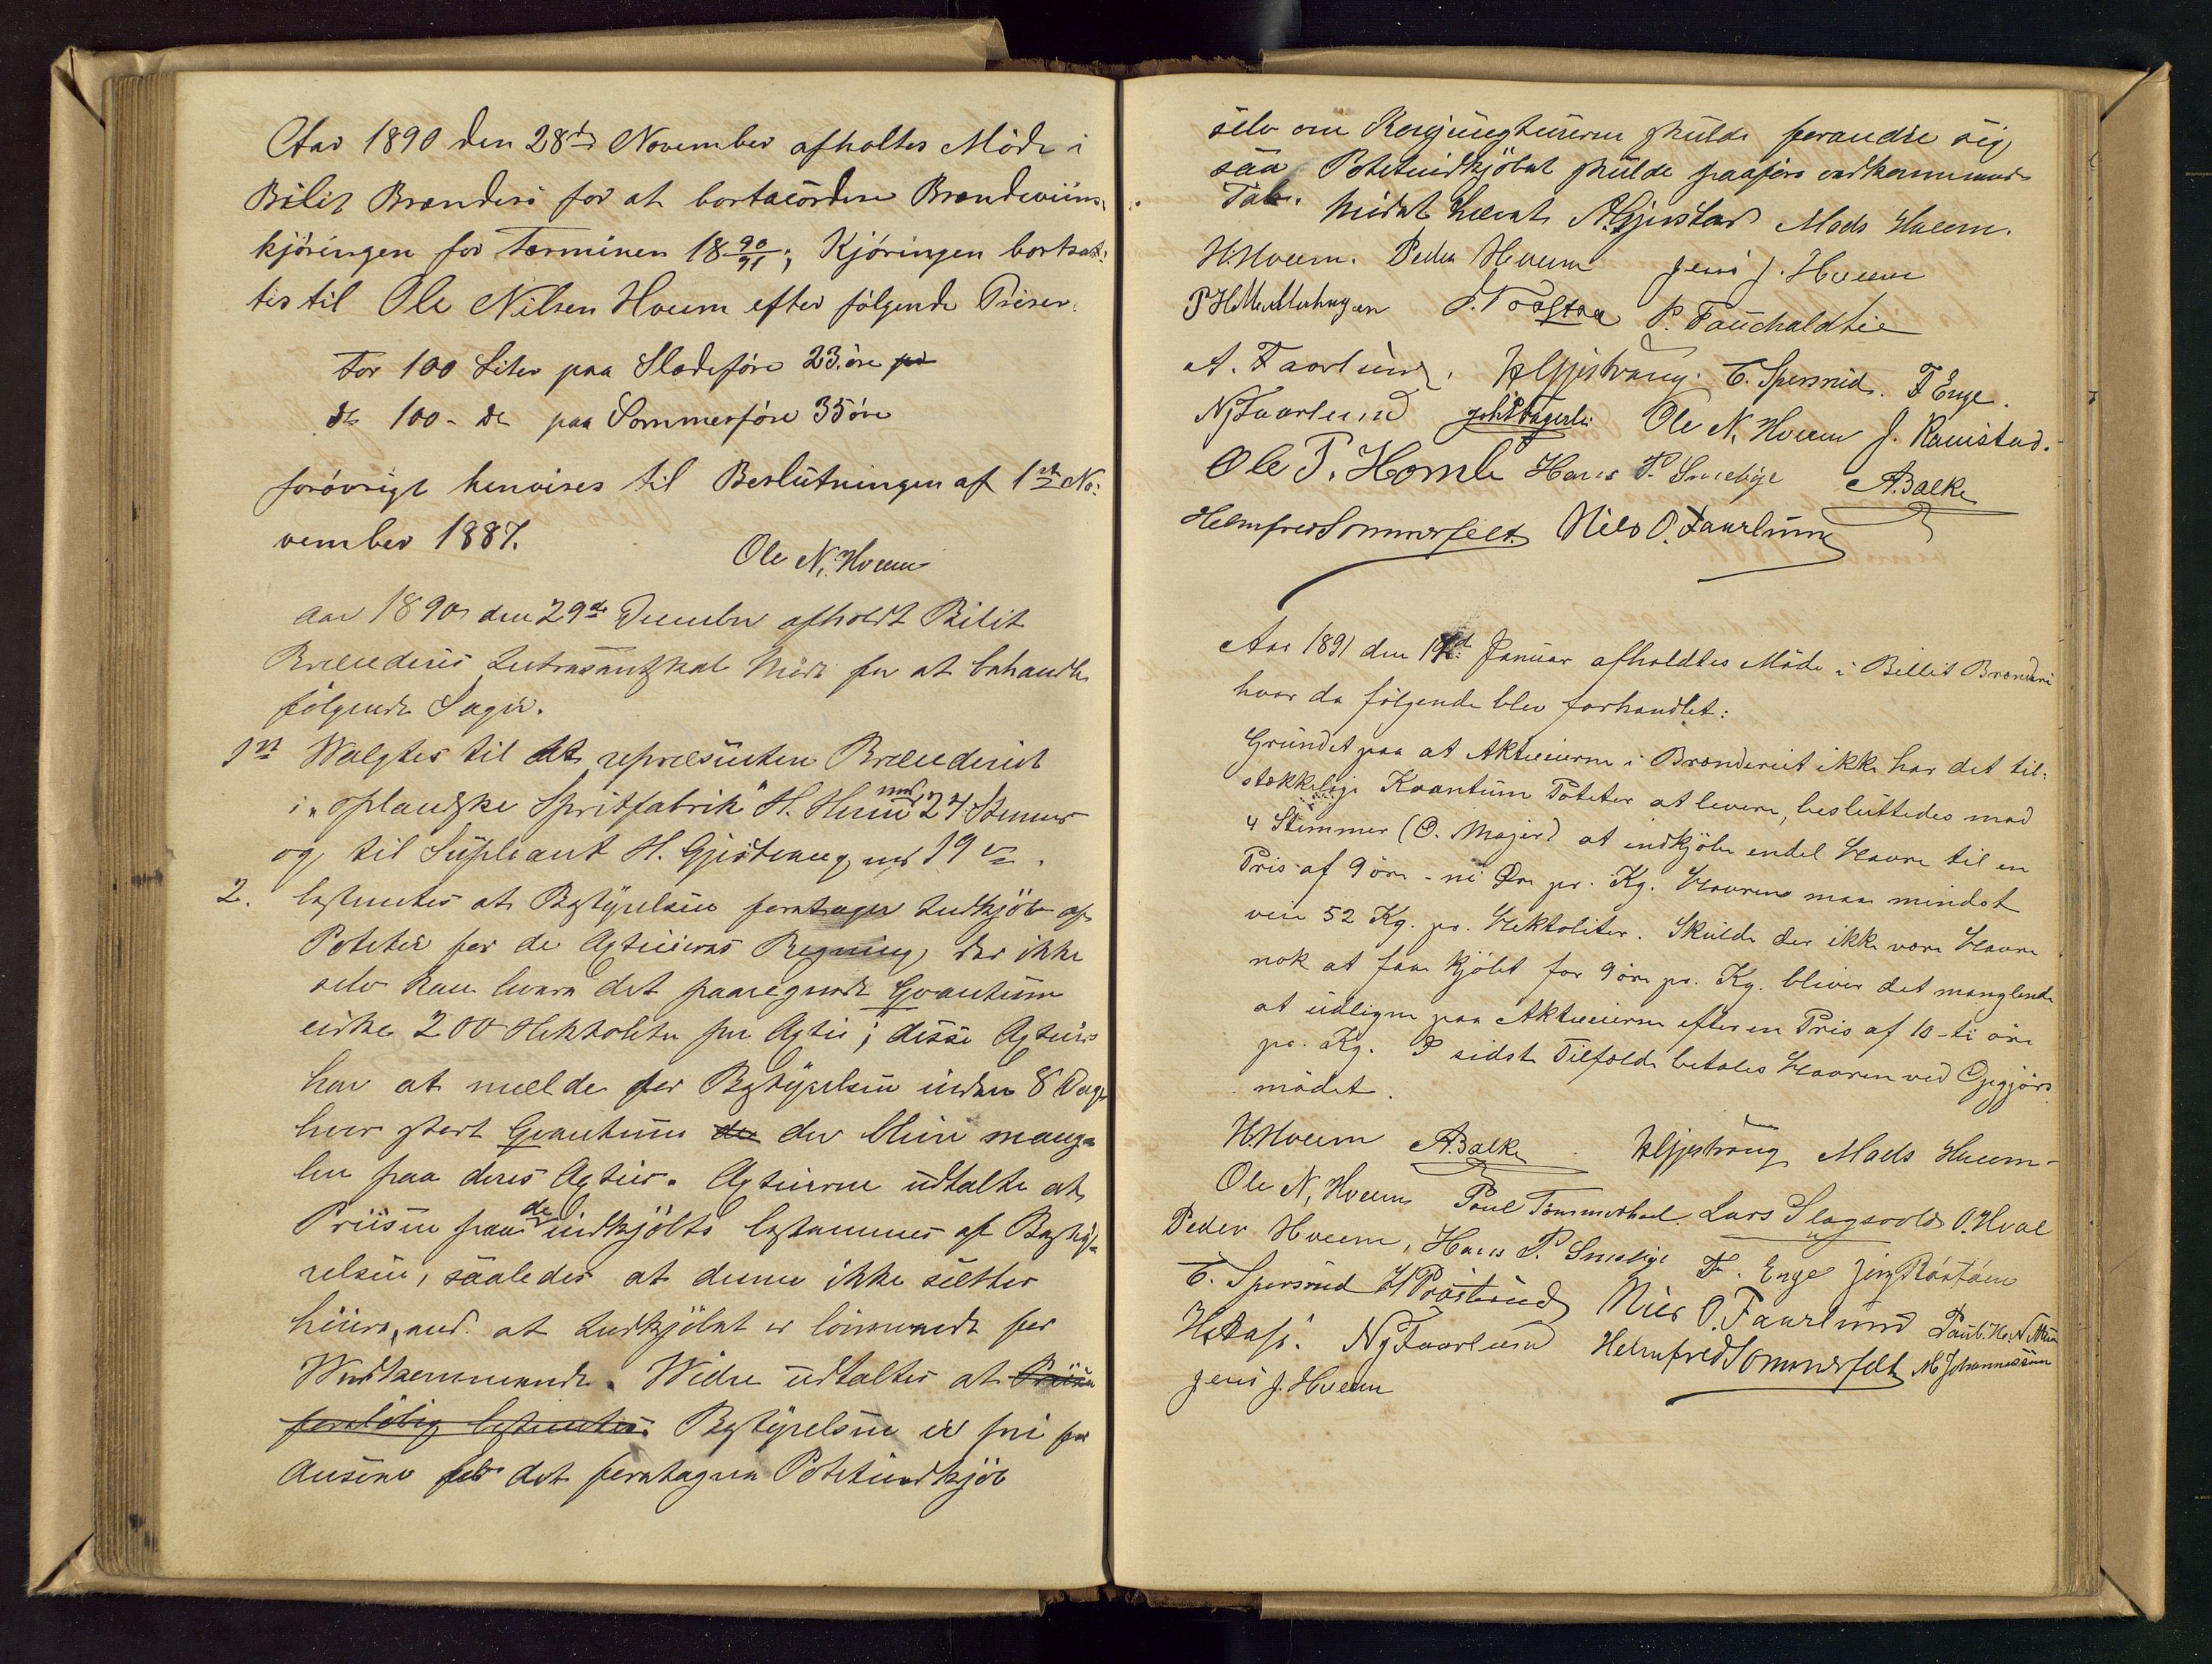 Aar 1890 den 28de November afholtes Möde i
Bilit Brænderi for at bortacordere Brændeviins-
kjöringen for Terminen 18 90/91; Kjöringen bortsat-
tes til Ole Nilsen Hveem efter fölgende Priser.
For 100 Liter paa Sladeföre 23 öre
do 100 - do paa Sommerföre 35 öre
forövrigt henvises til Beslutningen af 1ste No-
vember 1887.
Ole N. Hveem
Aar 1890 den 29de December afholdt Bilit
Brænderis Intresentskab Möde for at behandle
fölgende Sager.
1st Valgtes til at repræsentere Brænderiet
i "Oplandske Spritfabrik" H. Hveem med 24 Stemmer
og til Supleant H. Gjestvang med 19 do.
2. bestemtes at Bestyrelsen foretager Indkjöb af
Poteter for de Actieieres Regning der ikke
selv kan levere det paaregnede Qvantum
cirka 200 Hektoliter per Actie; disse Actieiere
har at melde for Bestyrelsen inden 8 Dage
hvor stort Qvantum de der bliver mang-
len paa deres Actier. Actieierne udtalte at
Prisen paa de indkjöbte bestemmes af Besty-
relsen, saaledes at denne ikke settes
höiere, end at Indkjöbet er lönnende for
Vedkommende. Videre udtaltes at Prisen
foreløbig bestemtes. Bestyrelsen er fri for
Ansvar for det foretagne Potetindkjöb
selv om Konjungturerne skulde forandre sig
saa Potetindkjöbet skulde paaføre vedkommende
Tab. Mödet hævet A. Gjestvang Mads Hveem.
H. Hveem. Peder Hveem Jens J. Hveem
P. Fauchaldlie
A. Faarlund. H Gjestvang. C. Spersrud. F Enge.
N J Faarlund Ole N. Hveem J. Ramstad.
Ole P. Homle Hans P. Smebye A. Balke
Helmfred Sommerfeldt Nils O. Faarlund
Aar 1891 den 19de Januar afholdtes Möde i Billit Brænderi
hvor da fölgende blev forhandlet:
Grundet paa at Aktieeierne i Brænderiet ikke har det til-
strekkelige Kvantum Poteter at levere, besluttedes mod
4 Stemmer (O. Majer) at indkjöbe endel Havre til en
Pris af 9 öre - ni Öre pr. Kg. Havren maa mindst
veie 52 Kg. pr. Hektoliter. Skulde der ikke være Havre
nok at faa kjöbt for 9 öre pr. Kg. bliver det manglende
at udligne paa Aktieeierne efter en Pris af 10 - ti öre
pr. Kg. I sidste Tilfælde betales Havren ved Opgjörs-
mödet.
H. Hveem A. Balke H Gjestvang Mads Hveem-
Ole N. Hveem Paul Tömmerhol Lars Slagsvold O. Hval
Peder Hveem, Hans P. Smebye F. Enge
C. Spersrud H Pröstrud Nils O. Faarlund
N J Faarlund Helmfred Sommerfeldt M Johannessen
Jens J. Hveem